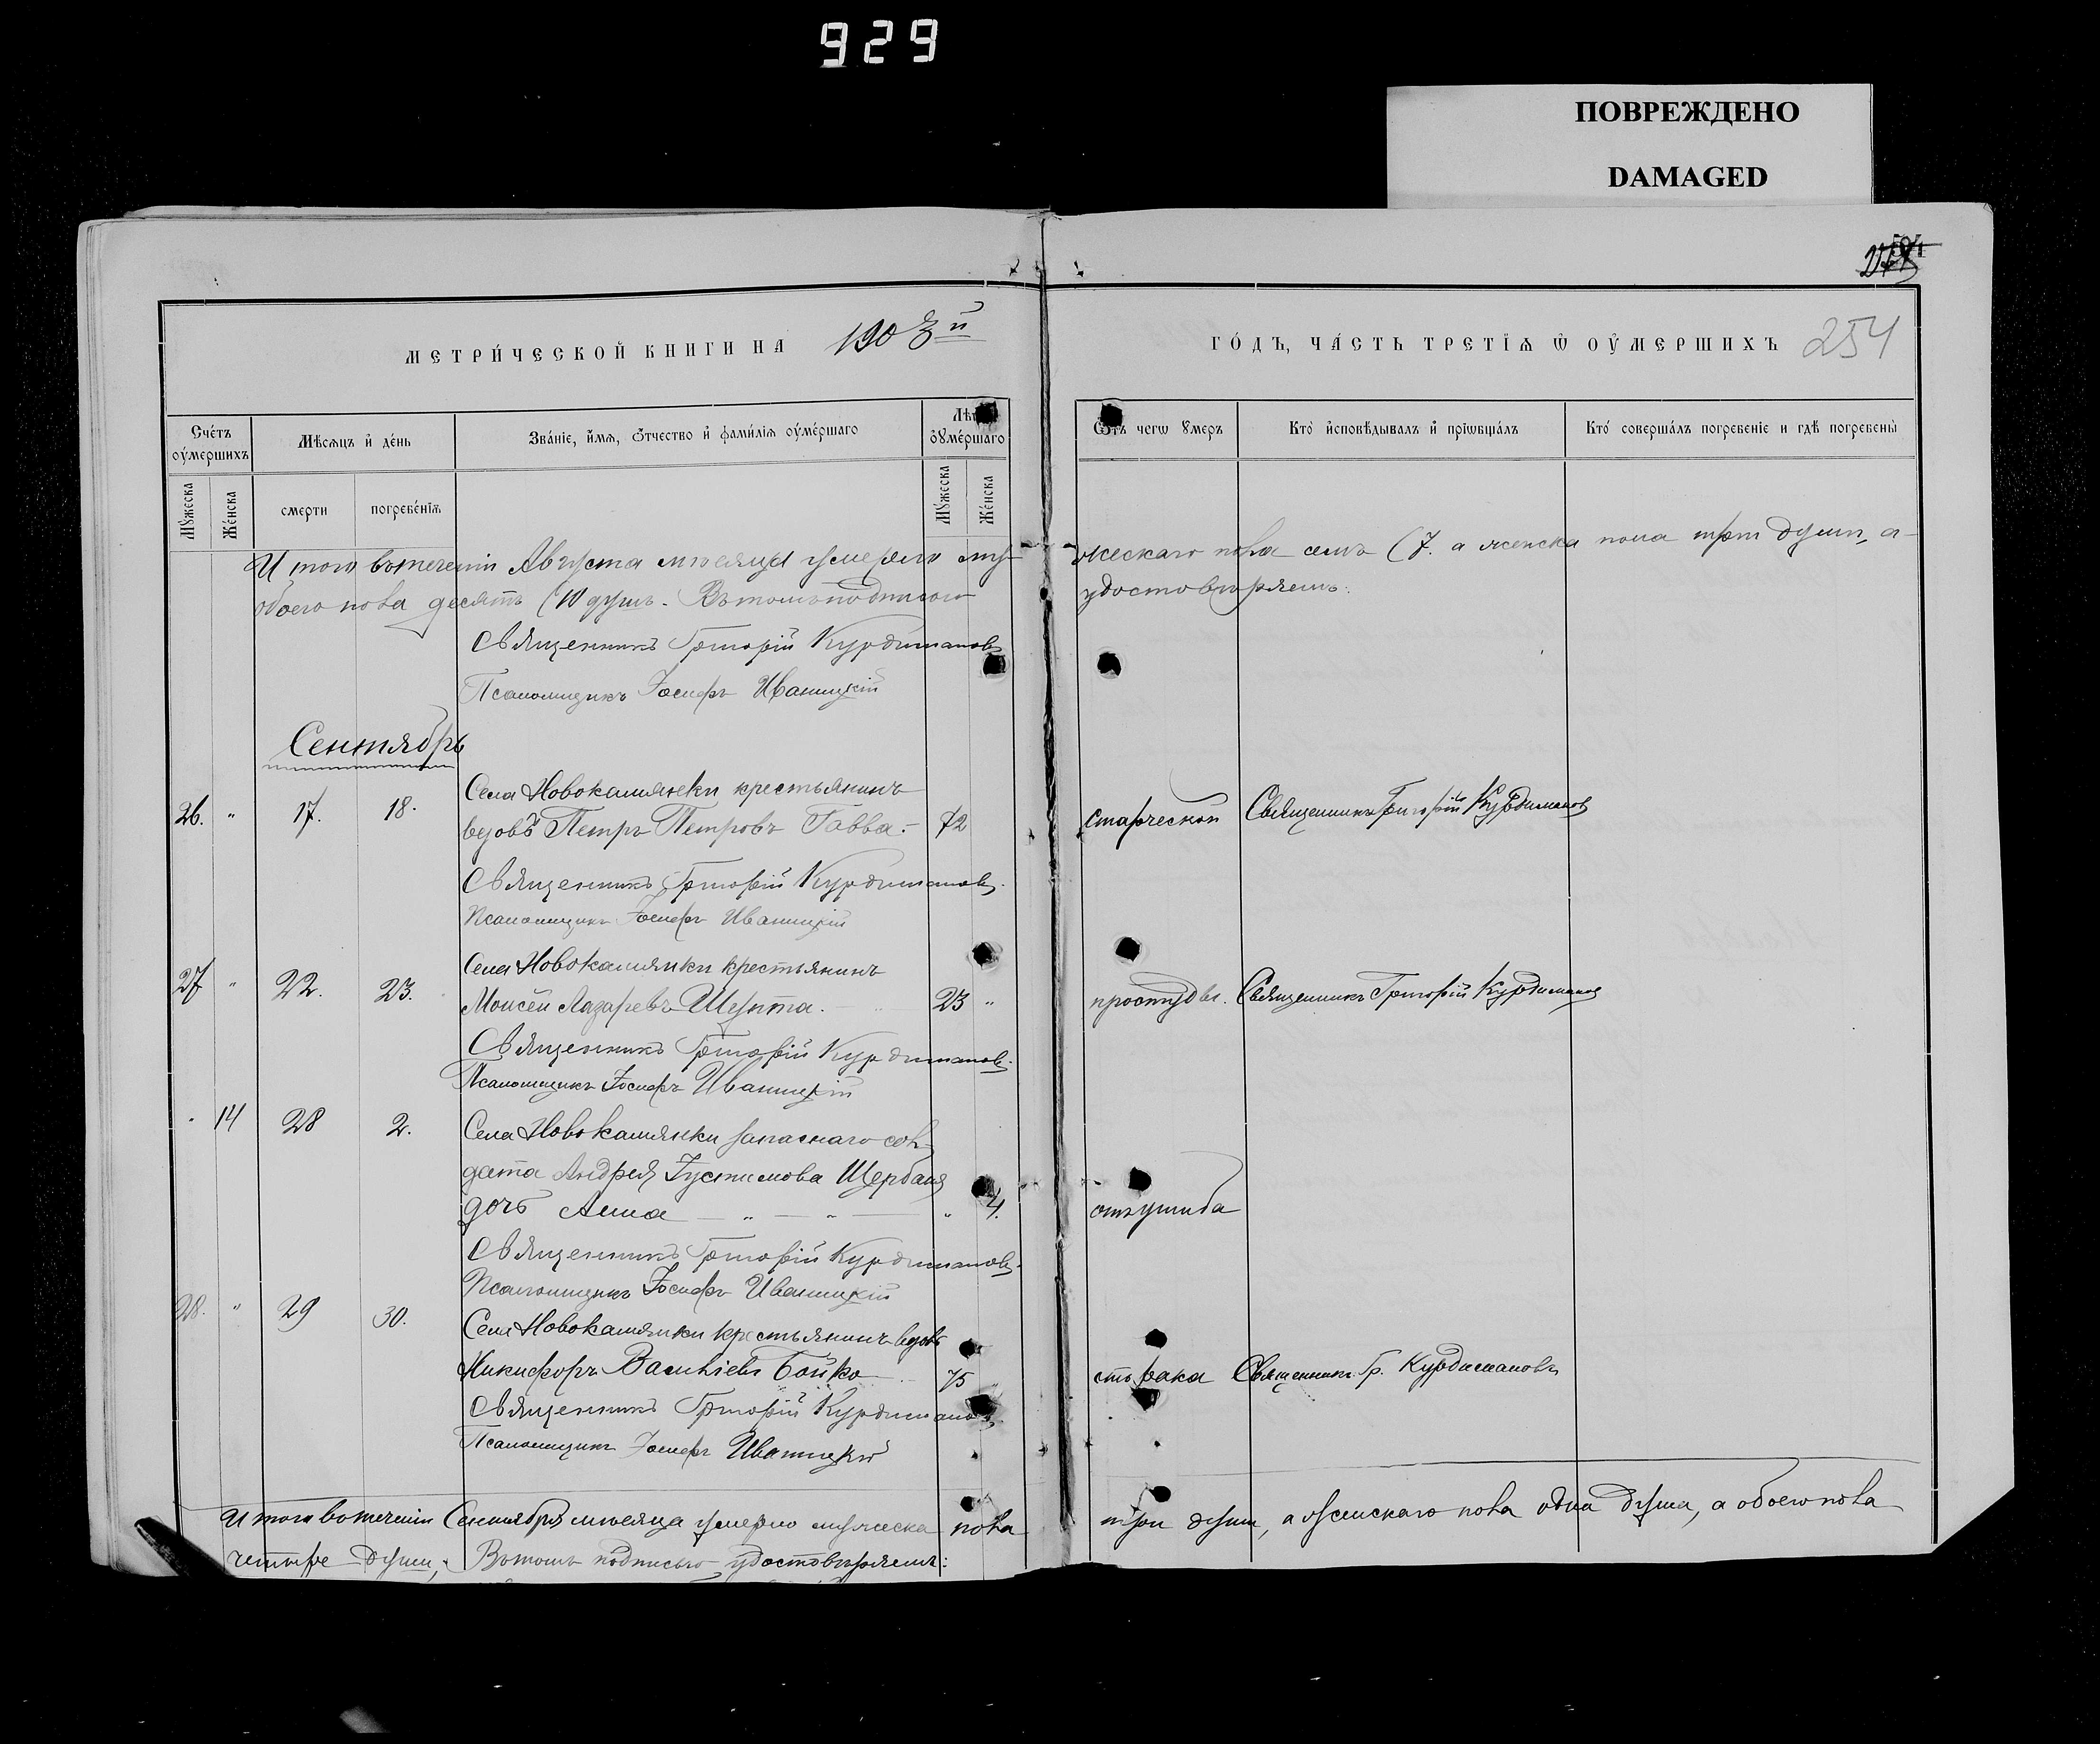 929
ПОВРЕЖДЕНО
DAMAGED
МЕТРИ́ЧЕСКОЙ КНИГИ НА 1903й
ГО́ДЪ, ЧА́СТЬ ТРЕТІѦ Ѡ ОУ҆МЕРШИХЪ 254
Сче́тъ оу҆ме́ршихъ
Мѣсѧцъ и҆ де́нь
Зва́ніе, и҆́мѧ, ѻ҆́тчество и҆ фами́лїѧ оу҆ме́ршагѡ
Лѣ оу҆ме́ршагѡ
Ѿ чегѡ ᲂу҆́меръ
Кто̀ и҆сповѣ́дывалъ и҆ прїѡбща́лъ
Кто́ соверша́лъ погребе́нїе и гдѣ̀ погребены̀
Мꙋ́жеска
Же́нска
смерти
погребе́нїѧ
Мꙋ́жеска
Же́нска
Итого втеченіи Августа мѣсяца умерло му-
жескаго пола семь (7. а женска пола три души, а
обоего пола десять (10 душъ. Въ томъ подписомъ
удостовѣряемъ:
Священникъ Григорій Курдимановъ
Псаломщикъ Іосифъ Иваницкій
Сентябрь
26. " 17. 18. Села Новокамянки крестьянинъ
вдовъ Петръ Петровъ Габва. 72 старческой Священникъ Григорій Курдимановъ
Священникъ Григорій Курдимановъ.
Псаломщикъ Іосифъ Иваницкій
27 " 22. 23. Села Новокамянки крестьянинъ
Моисей Лазаревъ 23 " простуды. Священникъ Григорій Курдимановъ
Священникъ Григорій Курдимановъ.
Псаломщикъ Іосифъ Иваницкій
" 14 28 2. Села Новокамянки запаснаго сол-
дата Андрея Іустимова Щербаня
дочь Анна " 4. отъ ушиба
Священникъ Григорій Курдимановъ.
Псаломщикъ Іосифъ Иваницкій
28. " 29 30. Села Новокамянки крестьянинъ вдовъ
Никифоръ Васильевъ Бойко 75 отъ рака Священникъ Гр. Курдимановъ
Священникъ Григорій Курдимановъ
Псаломщикъ Іосифъ Иваницкій
Итого втеченіи Сентября мѣсяца умерло мужеска пола
три души, а женскаго пола одна душа, а обоего пола
четыре души, Въ томъ подписью удостовѣряемъ: